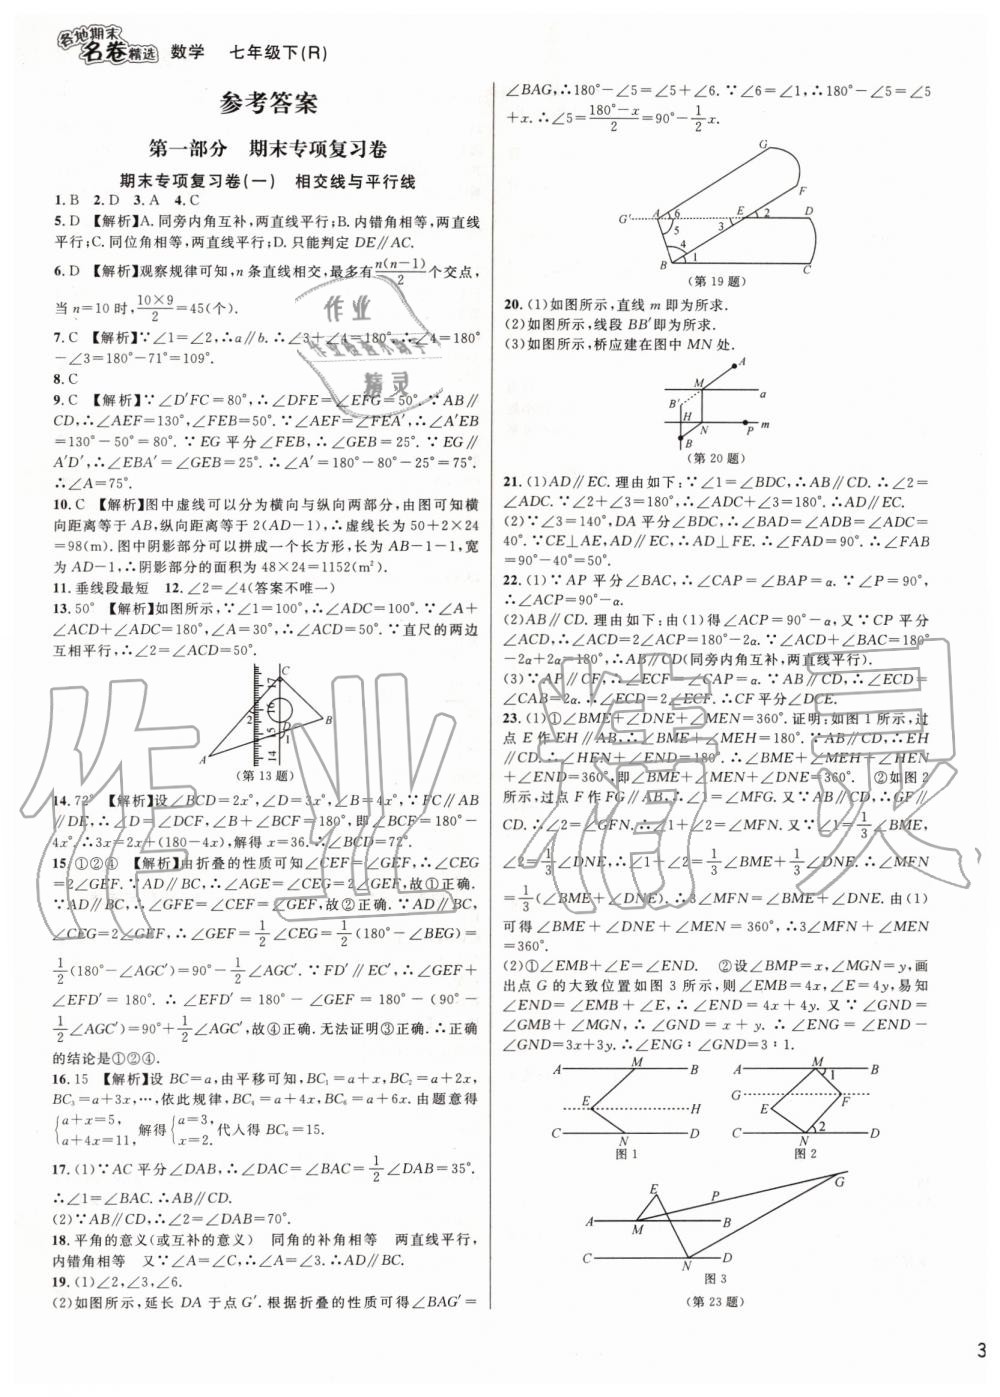 各地期末
名卷精选 数学 七年级下(R)
参考答案
第一部分 期末专项复习卷
期末专项复习卷(一) 相交线与平行线
1. B 2. D 3. A 4. C
5. D 【解析】A. 同旁内角互补,两直线平行;B. 内错角相等,两直线
平行;C. 同位角相等,两直线平行;D. 只能判定 DE∥AC.
6. D 【解析】观察规律可知,n 条直线相交,最多有n(n-1)/2个交点,
当 n=10 时,10×9/2=45(个).
7. C 【解析】∵∠1=∠2,∴a∥b.∴∠3+∠4=180°.∴∠4=180°
-∠3=180°-71°=109°.
8. C
9. C 【解析】∵∠D′FC=80°,∴∠DFE=∠EFG=50°.∵AB∥
CD,∴∠AEF=130°,∠FEB=50°.∵∠AEF=∠FEA′,∴∠A′EB
=130°-50°=80°.∵EG 平分∠FEB,∴∠GEB=25°.∵EG∥
A′D′,∴∠EBA′=∠GEB=25°.∴∠A′=180°-80°-25°=75°.
∴∠A=75°.
10. C 【解析】图中虚线可以分为横向与纵向两部分,由图可知横
向距离等于 AB,纵向距离等于 2(AD-1),∴虚线长为 50+2×24
=98(m). 图中阴影部分可以拼成一个长方形,长为 AB-1-1,宽
为 AD-1,∴阴影部分的面积为 48×24=1152(m²).
11. 垂线段最短 12. ∠2=∠4(答案不唯一)
13. 50° 【解析】如图所示,∵∠1=100°,∴∠ADC=100°.∵∠A+
∠ACD+∠ADC=180°,∠A=30°,∴∠ACD=50°.∵直尺的两边
互相平行,∴∠2=∠ACD=50°.
C
17
2 16
15 D B
1
A 14
(第 13 题)
14. 72° 【解析】设∠BCD=2x°,∠D=3x°,∠B=4x°,∵FC∥AB
∥DE,∴∠D=∠DCF,∠B+∠BCF=180°,即∠BCF=180°-
4x°.∴3x=2x+(180-4x),解得 x=36.∴∠BCD=72°.
15. ①②④ 【解析】由折叠的性质可知∠CEF=∠GEF,∴∠CEG
=2∠GEF.∵AD∥BC,∴∠AGE=∠CEG=2∠GEF,故①正确.
∵AD∥BC,∴∠GFE=∠CEF=∠GEF,故②正确.∵AD∥BC,
∠CEG=2∠GEF,∴∠GEF=1/2∠CEG=1/2(180°-∠BEG)=
1/2(180°-∠AGC′)=90°-1/2∠AGC′.∵FD′∥EC′,∴∠GEF+
∠EFD′=180°.∴∠EFD′=180°-∠GEF=180°-(90°-
1/2∠AGC′)=90°+1/2∠AGC′,故④正确. 无法证明③正确.∴正确
的结论是①②④.
16. 15 【解析】设 BC=a,由平移可知,BC₁=a+x,BC₂=a+2x,
BC₃=a+3x,…,依此规律,BC₄=a+4x,BC₆=a+6x. 由题意得
{a+x=5, a+4x=11, 解得{a=3, x=2. 代入得 BC₆=15.
17. (1)∵AC 平分∠DAB,∴∠DAC=∠BAC=1/2∠DAB=35°.
∴∠1=∠BAC.∴AB∥CD.
(2)∵AB∥CD,∴∠2=∠DAB=70°.
18. 平角的意义(或互补的意义) 同角的补角相等 两直线平行,
内错角相等 又∵∠A=∠C,∴∠A=∠3.∴AD∥BC.
19. (1)∠2,∠3,∠6.
(2)如图所示,延长 DA 于点 G′. 根据折叠的性质可得∠BAG′=
∠BAG,∴180°-∠5=∠5+∠6.∵∠6=∠1,∴180°-∠5=∠5
+x.∴∠5=180°-x/2=90°-1/2x.
G
F
G′ A 6 E 2 D
5 3
4
B 1 C
(第 19 题)
20. (1)如图所示,直线 m 即为所求.
(2)如图所示,线段 BB′即为所求.
(3)如图所示,桥应建在图中 MN 处.
A
M a
B′
H
N P m
B
(第 20 题)
21. (1)AD∥EC. 理由如下:∵∠1=∠BDC,∴AB∥CD.∴∠2=
∠ADC.∵∠2+∠3=180°,∴∠ADC+∠3=180°.∴AD∥EC.
(2)∵∠3=140°,DA 平分∠BDC,∴∠BAD=∠ADB=∠ADC=
40°.∵CE⊥AE,AD∥EC,∴AD⊥FE.∴∠FAD=90°.∴∠FAB
=90°-40°=50°.
22. (1)∵AP 平分∠BAC,∴∠CAP=∠BAP=α.∵∠P=90°,
∴∠ACP=90°-α.
(2)AB∥CD. 理由如下:由(1)得∠ACP=90°-α,又∵CP 平分
∠ACD,∴∠ACD=2∠ACP=180°-2α.∴∠ACD+∠BAC=180°
-2α+2α=180°.∴AB∥CD(同旁内角互补,两直线平行).
(3)∵AP∥CF,∴∠ECF=∠CAP=α.∵AB∥CD,∴∠ECD=
∠CAB=2α.∴∠ECD=2∠ECF.∴CF 平分∠DCE.
23. (1)①∠BME+∠DNE+∠MEN=360°. 证明:如图 1 所示,过
点 E 作 EH∥AB,∴∠BME+∠MEH=180°.∵AB∥CD,∴EH
∥CD.∴∠HEN+∠END=180°.∴∠BME+∠MEH+∠HEN
+∠END=360°,即∠BME+∠MEN+∠DNE=360°. ②如图 2
所示,过点 F 作 FG∥AB,∴∠1=∠MFG. 又∵AB∥CD,∴GF∥
CD.∴∠2=∠GFN.∴∠1+∠2=∠MFN. 又∵∠1=1/3∠BME,
∠2=1/3∠DNE,∴∠1+∠2=1/3∠BME+1/3∠DNE.∴∠MFN
=1/3(∠BME+∠DNE).∴3∠MFN=∠BME+∠DNE. 由(1)
可得∠BME+∠DNE+∠MEN=360°,∴3∠MFN+∠MEN
=360°.
(2)①∠EMB+∠E=∠END. ②设∠BMP=x,∠MGN=y,画
出点 G 的大致位置如图 3 所示,则∠EMB=4x,∠E=4y,易知
∠END=∠EMB+∠E,∴∠END=4x+4y. 又∵∠GND=
∠GMB+∠MGN,∴∠GND=x+y.∴∠ENG=∠END-
∠GND=3x+3y.∴∠ENG∶∠GND=3∶1.
A M B
E H
C N D
图 1
A M 1 B
G F
E
C 2 N D
图 2
E P G
A M B
C N D
图 3
(第 23 题)
作业
作业检查小助手
精灵
作业精灵
3